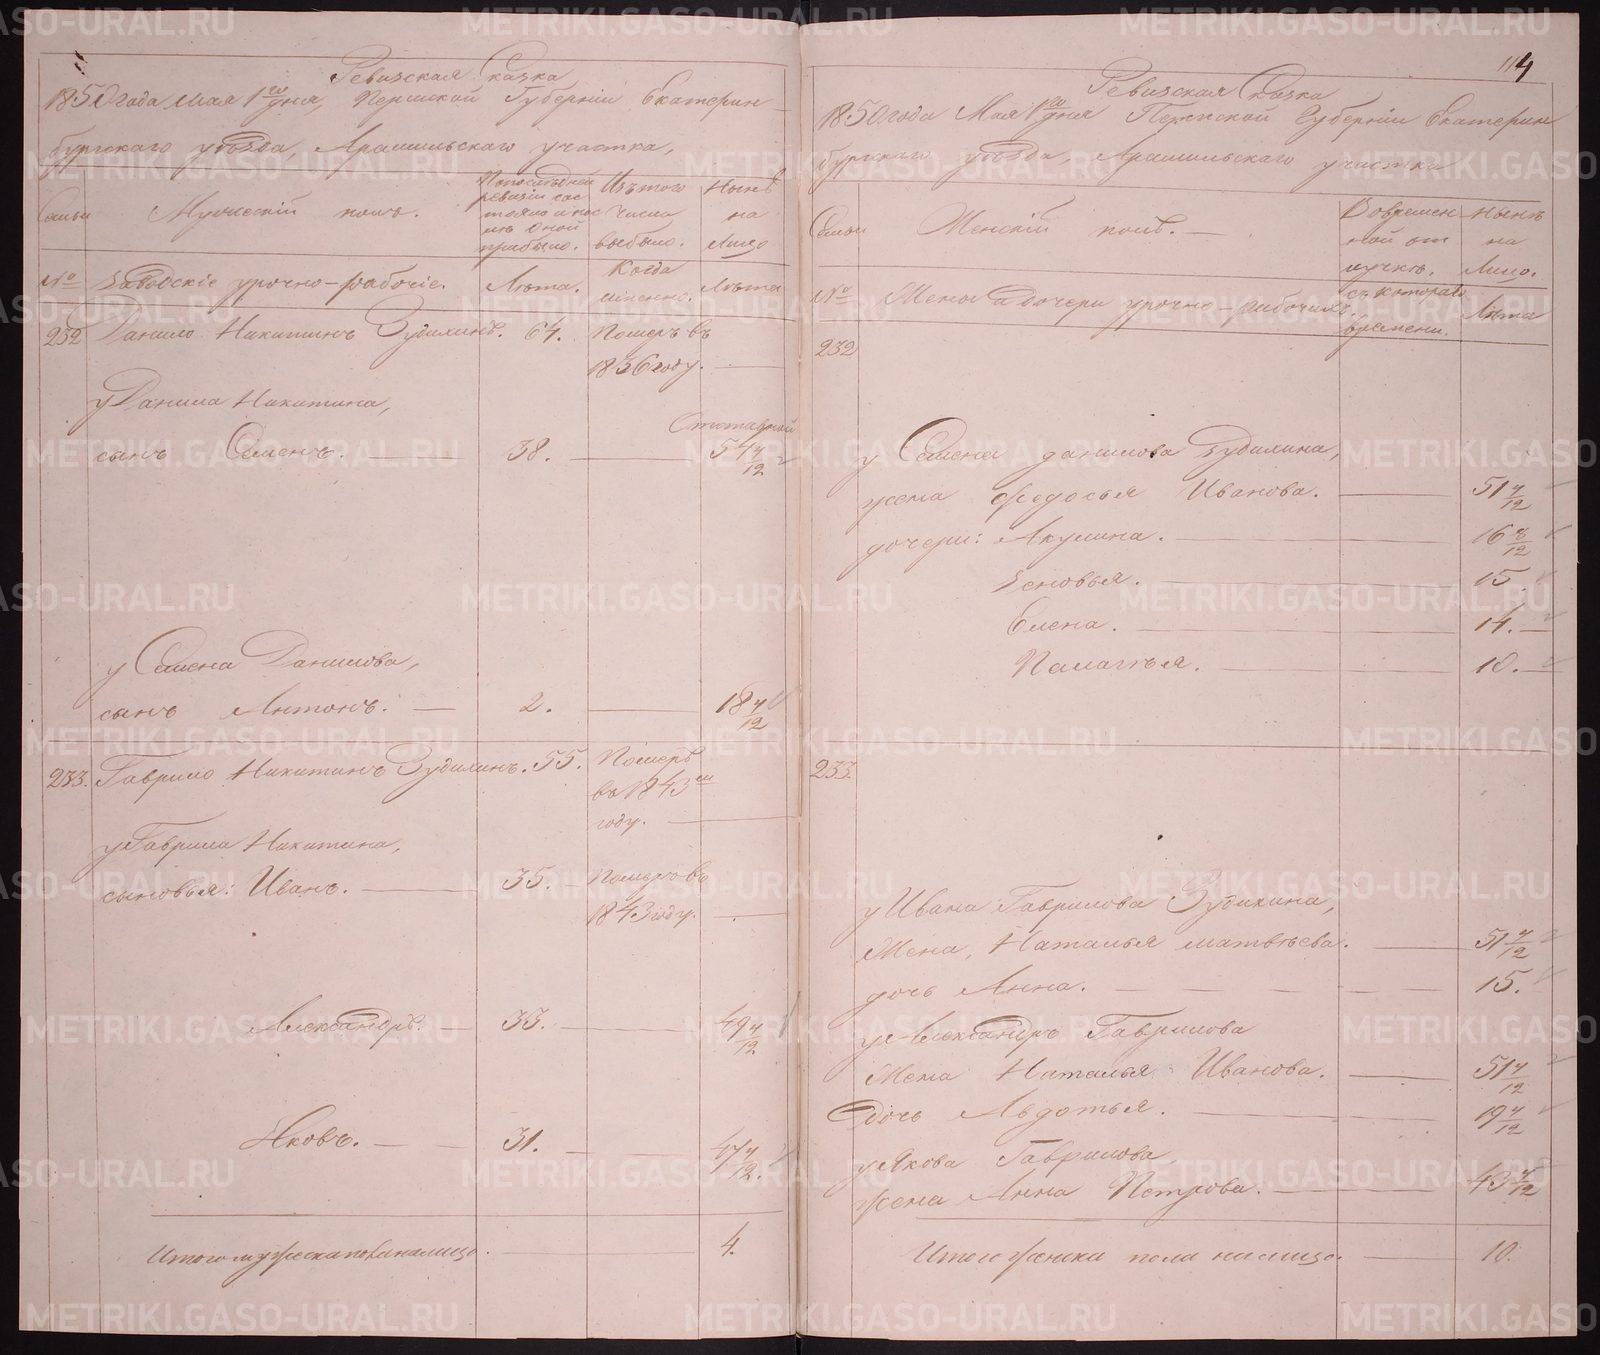 Ревизская Сказка
1850 года Мая 1го дня, Пермской Губерніи Екатерин
бургскаго уѣзда, Арамильскаго участка,
Семьи
Мужескій полъ.
По последней ревизіи сос
тояло и пос
лѣ оной
прибыло.
Изъ того
числа
выбыло.
Нынѣ
на
Лицо
№
Заводскіе урочно-рабочіе.
Лѣта.
Когда
именно.
Лѣта
232 Данило Никитинъ Зудихинъ. 64. Померъ въ
1836 году.
у Данила Никитина,
сынъ Семенъ. 38. 54 4/12
у Семена Данилова,
сынъ Антонъ. 2. 18 4/12
233. Гаврило Никитинъ Зудихинъ. 55. Померъ
въ 1843м
году.
у Гаврила Никитина,
сыновья: Иванъ. 35. Померъ въ
1843 году.
Александръ. 33. 49 4/12
Яковъ. 31. 47 4/12.
Итого мужеска пола на лицо. 4.
114
Ревизская Сказка
1850 года Мая 1го дня Пермской Губерніи Екатерин
бургскаго уѣзда, Арамильскаго участка
Семьи
Женскій полъ.
Во времен
ной от
лучкѣ.
Нынѣ
на
Лицо.
№
Жены и дочери урочно-рабочихъ.
съ котораго
времени.
Лѣта
232
у Семена Данилова Зудихина,
жена Федосья Иванова. 51 4/12
дочери: Акулина. 16 8/12
Зеновья. 15
Елена. 14.
Палагья. 10.
233.
у Ивана Гаврилова Зудихина,
Жена, Наталья Матвѣева. 51 4/12
дочь Анна. 15.
у Александръ Гаврилова
Жена Наталья Иванова. 51 4/12
дочь Авдотья. 19 4/12
у Якова Гаврилова
жена Анна Петрова. 43 4/12
Итого женска пола на лицо. 10.
METRIKI.GASO-URAL.RU